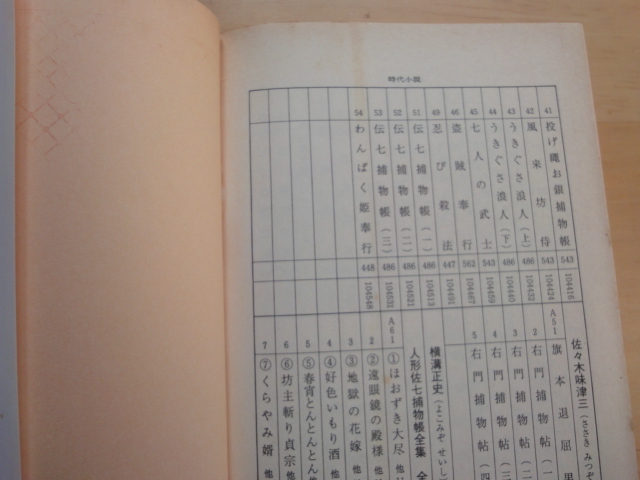 時代小説
41 投げ縄お銀捕物帳 543 104416
42 風来坊侍 543 104424
43 うきぐさ浪人(上) 486 104432
44 うきぐさ浪人(下) 486 104440
45 七人の武士 543 104459
46 盗賊奉行 562 104467
49 忍び殺法 447 104491
51 伝七捕物帳(一) 486 104513
52 伝七捕物帳(二) 486 104521
53 伝七捕物帳(三) 486 104531
54 わんぱく姫奉行 448 104548
佐々木味津三(ささき みつぞ
A51 旗本退屈男
2 右門捕物帖(一
3 右門捕物帖(二
4 右門捕物帖(三
5 右門捕物帖(四
横溝正史(よこみぞ せいし)
人形佐七捕物帳全集 全
A61 ①ほおずき大尽 他
2 ②遠眼鏡の殿様 他
3 ③地獄の花嫁 他
4 ④好色いもり酒 他
5 ⑤春宵とんとんとん
6 ⑥坊主斬り貞宗 他
7 ⑦くらやみ婿 他